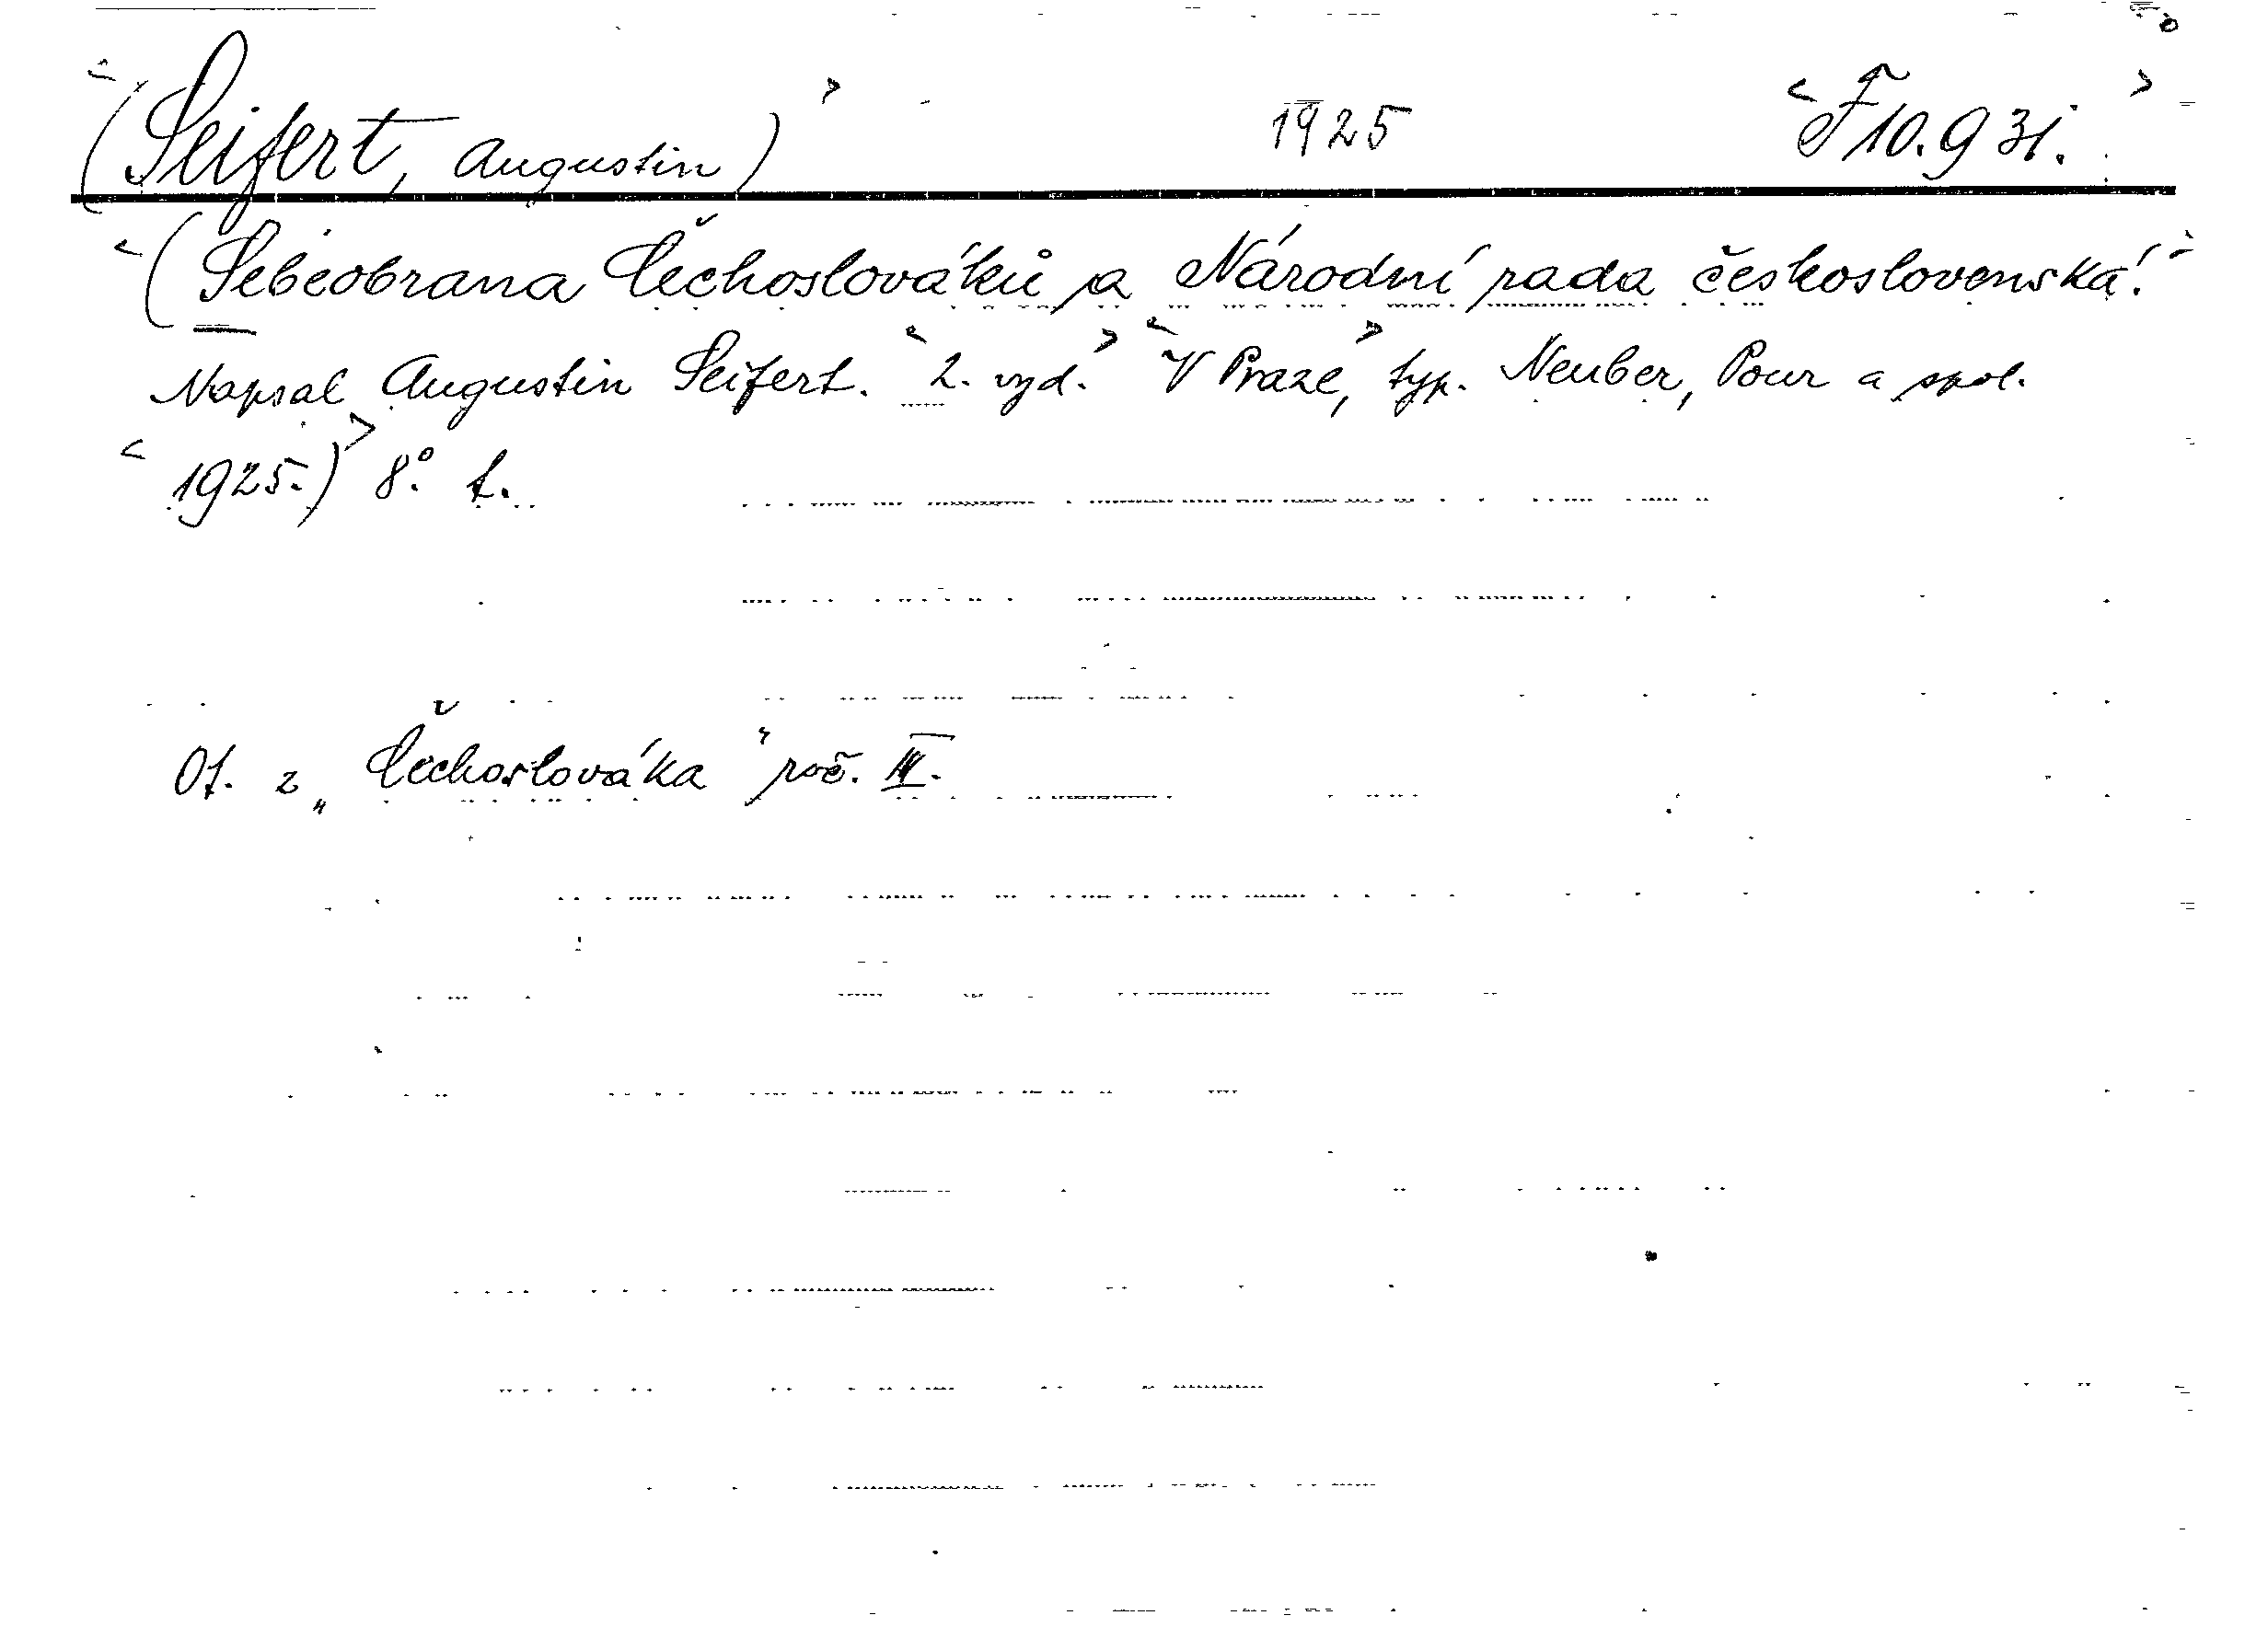 (Seifert, Augustin) 1925 F 10.931.
(Sebeobrana Čechoslováků a Národní rada československá.
Napsal Augustin Seifert. 2. vyd. V Praze, typ. Neuber, Pour a spol.
1925.) 8°.
Ot. z „Čechoslováka" roč. III.